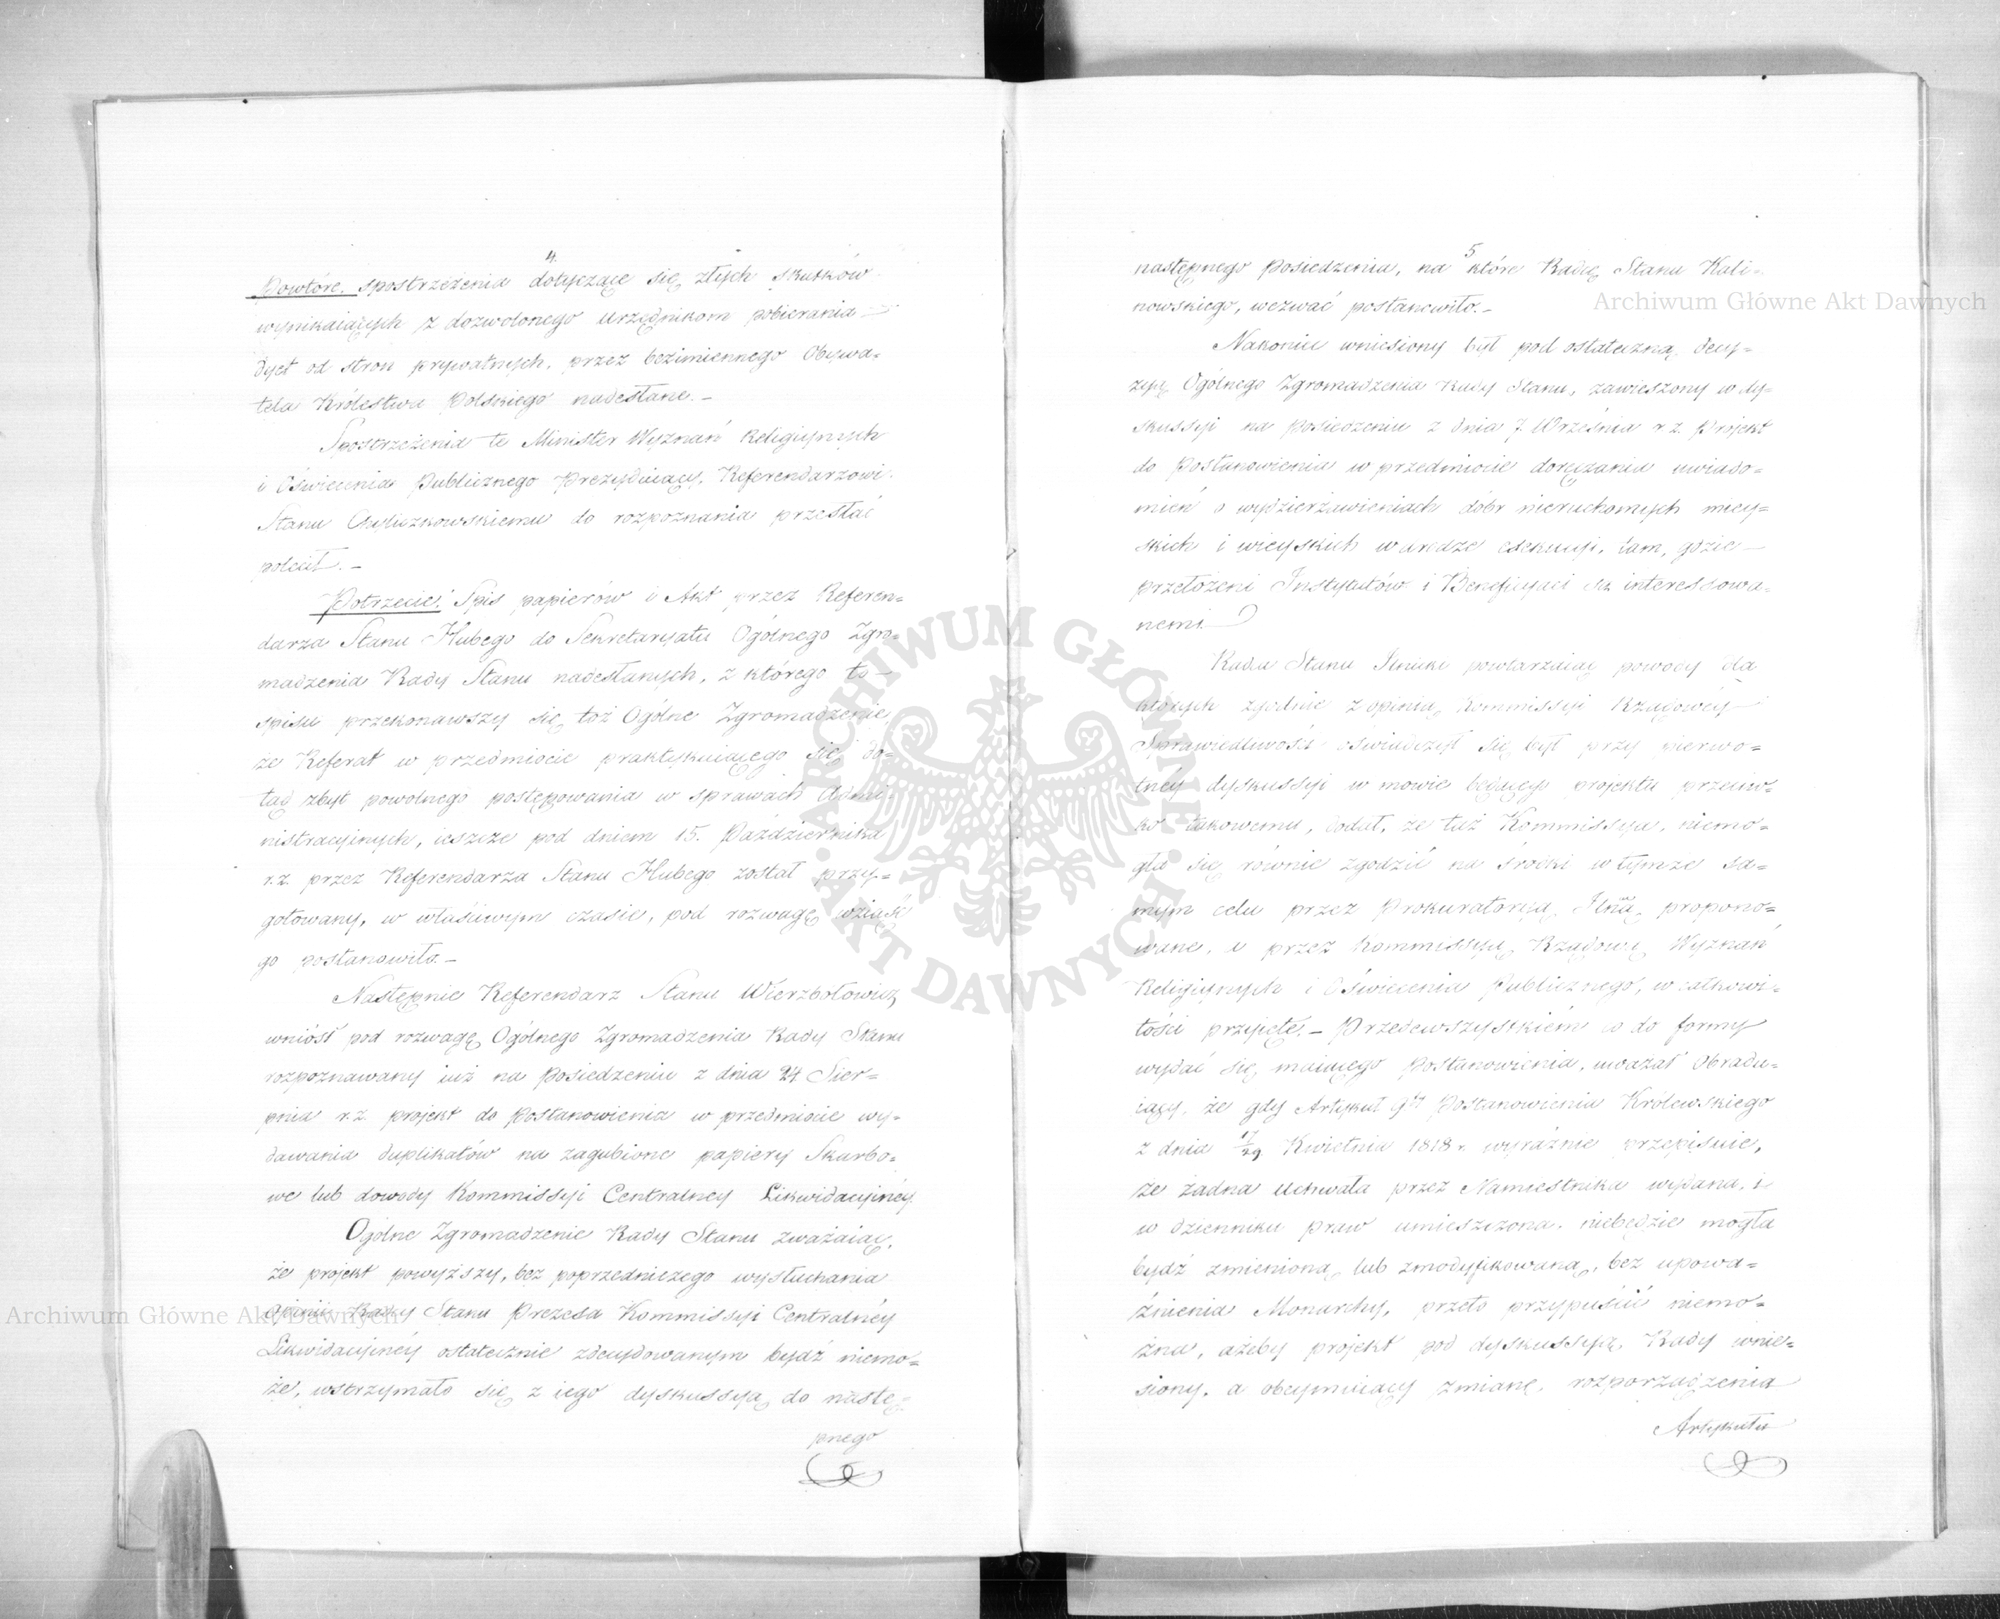 4.
Powtóre. spostrzeżenia dotyczące się złych skutków
wynikaiących z dozwolonego Urzędnikom pobierania
dyet od stron prywatnych, przez bezimiennego Obywa=
tela Królestwa Polskiego nadesłane.–
Spostrzeżenia te Minister Wyznań Religijnych
i Oświecenia Publicznego Prezyduiący, Referendarzowi
Stanu do rozpoznania przesłać
polecił.–
Potrzecie: Spis papierów i Akt przez Referen=
darza Stanu Hubego do Sekretaryatu Ogólnego Zgro=
madzenia Rady Stanu nadesłanych, z którego to
spisu przekonawszy się toż Ogólne Zgromadzenie,
że Referat w przedmiocie praktykuiącego się do=
tąd zbyt powolnego postępowania w sprawach Admi=
nistracyjnych, ieszcze pod dniem 15. Października
r.z. przez Referendarza Stanu Hubego został przy=
gotowany, w właściwym czasie, pod rozwagę wziąść
go postanowiło.–
Następnie Referendarz Stanu Wierzbołowicz,
wniósł pod rozwagę Ogólnego Zgromadzenia Rady Stanu
rozpoznawany iuż na Posiedzeniu z dnia 24 Sier=
pnia r.z. projekt do Postanowienia w przedmiocie wy=
dawania duplikatów na zagubione papiery Skarbo=
we lub dowody Kommissyi Centralney Likwidacyinéy.
Ogólne Zgromadzenie Rady Stanu zważaiąc,
że projekt powyższy, bez poprzedniczego wysłuchania
opinii Radcy Stanu Prezesa Kommissyi Centralnéy
Likwidacyinéy ostatecznie zdecydowanym bydź niemo=
że, wstrzymało się z iego dyskussyą do nastę=
pnego
5
następnego Posiedzenia, na które Radcę Stanu Kali=
nowskiego, wezwać postanowiło.–
Nakoniec wniesiony był pod ostateczną decy=
zyę Ogólnego Zgromadzenia Rady Stanu, zawieszony w dy=
skussyi na Posiedzeniu z dnia 7. Września r.z. Projekt
do Postanowienia w przedmiocie doręczania uwiado=
mień o wydzierżawieniach dóbr nieruchomych miey=
skich i wieyskich w drodze exekucyi, tam, gdzie
przełożeni Instytutów i Beneficyaci są interessowa=
nemi.
Radca Stanu Ilnicki powtarzaiąc powody dla
których zgodnie z opinią Kommissyi Rządowéy
Sprawiedliwości oświadczył się był przy pierwo=
tnéy dyskussyi w mowie będącego projektu przeciw=
ko takowemu, dodał, że taż Kommissya, niemo=
gła się równie zgodzić na środki w tymże sa=
mym celu przez Prokuratoryą Jlną propono=
wane, a przez Kommissyą Rządową Wyznań
Religijnych i Oświecenia Publicznego, w całkowi=
tości przyięte.– Przedewszystkiém co do formy
wydać się maiącego Postanowienia, uważał Obradu=
iący, że gdy Artykuł 9ty Postanowienia Królewskiego
z dnia 17/29 Kwietnia 1818 r. wyraźnie przepisuie,
że żadna Uchwała przez Namiestnika wydana, i
w dzienniku praw umieszczona, niebędzie mogła
bydź zmienioną lub zmodyfikowaną, bez upowa=
żnienia Monarchy, przeto przypuścić niemo=
żna, ażeby projekt pod dyskussyą Rady wnie=
siony, a obeymuiący zmianę, rozporządzenia
Artykułu
Archiwum Główne Akt Dawnych
Archiwum Główne Akt Dawnych
ARCHIWUM GŁÓWNE
AKT DAWNYCH